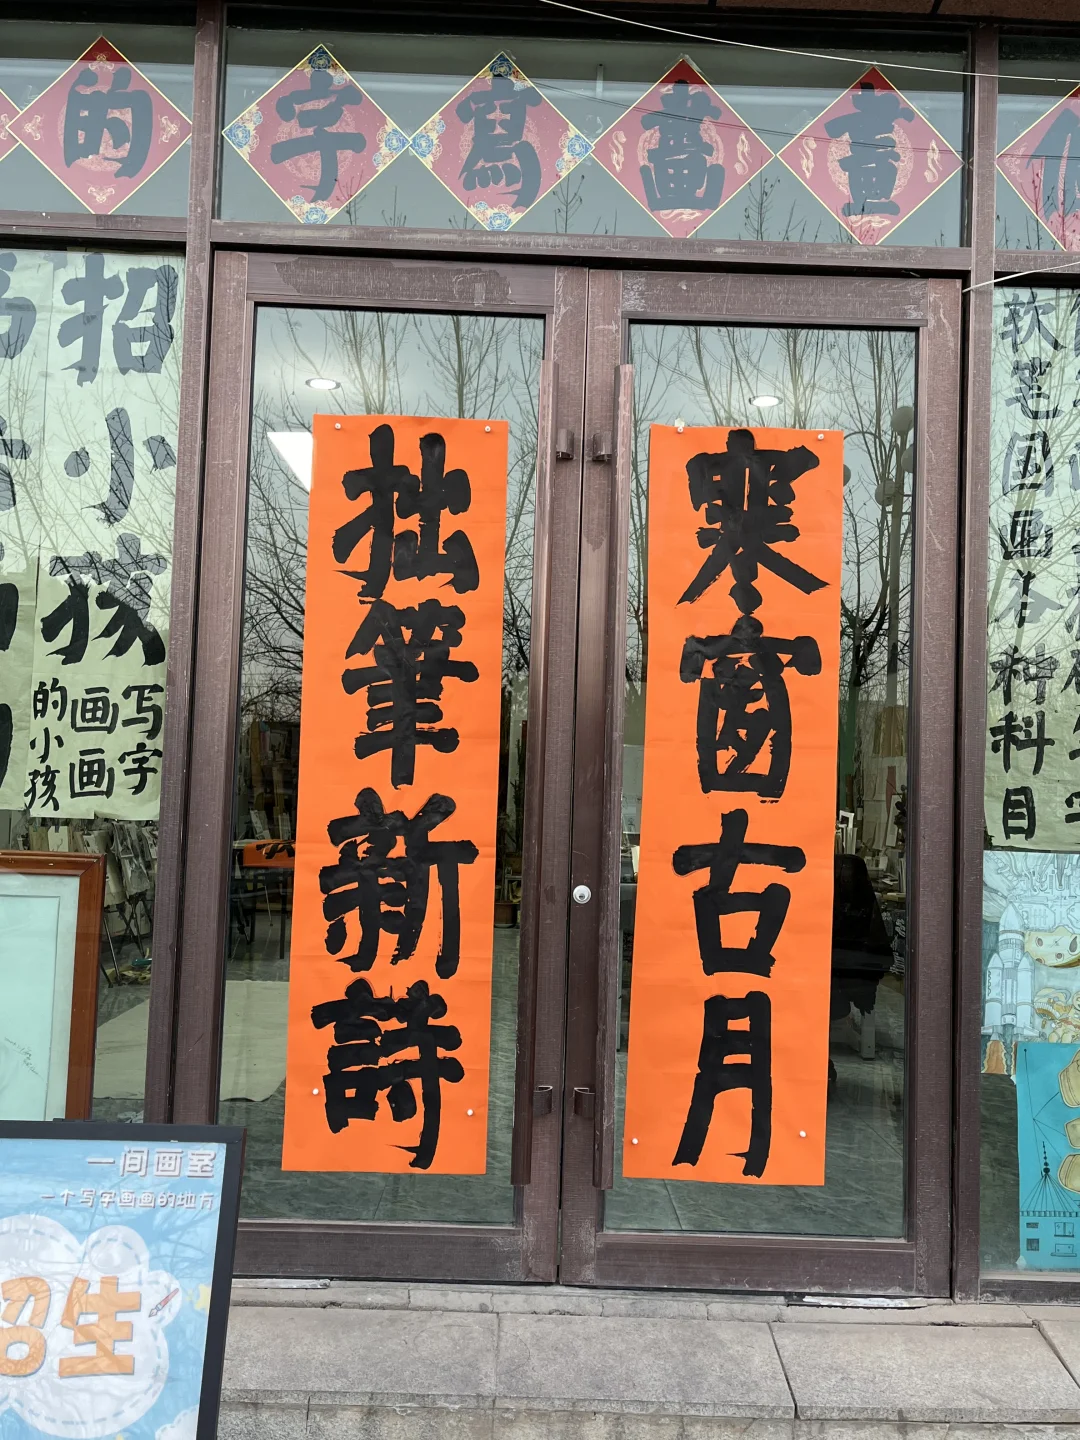 畫畫寫字的
寒窗古月
拙筆新詩
招小孩
写字
画画
的小孩
软笔国画各种科目
一间画室
一个写字画画的地方
招生